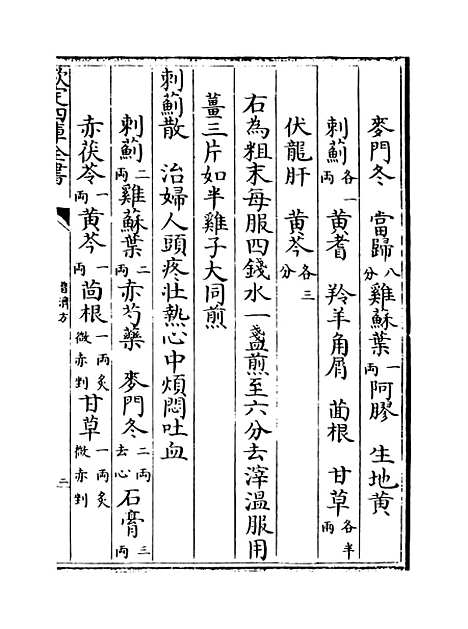 麥門冬　當歸八分雞蘇葉一兩阿膠　生地黄
刺薊各一兩黄耆　羚羊角屑　茴根　甘草各半兩
伏龍肝　黄芩各三分
右為粗末每服四錢水一盞煎至六分去滓温服用
薑三片如半雞子大同煎
刺薊散　治婦人頭疼壮熱心中煩悶吐血
刺薊二兩雞蘇葉二兩赤芍藥　麥門冬二兩去心石膏三兩
赤茯苓一兩黄芩一兩茴根一兩炙微赤剉甘草一兩炙微赤剉
欽定四庫全書
普濟方
二